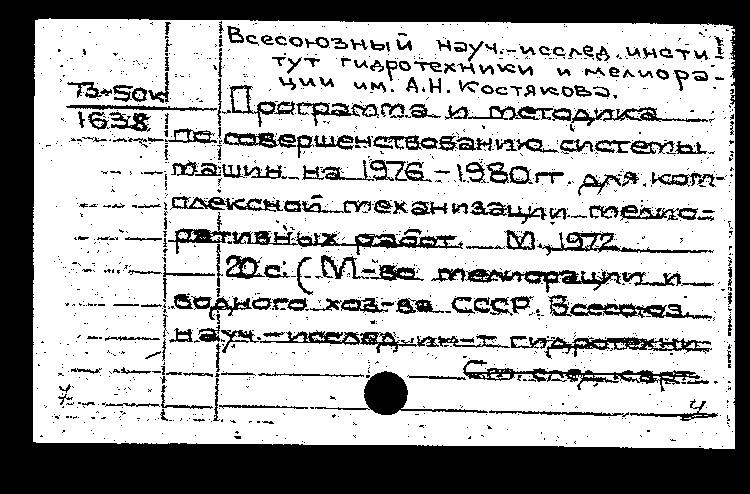 Всесоюзный науч.-исслед. инсти-
тут гидротехники и мелиора-
ции им. А.Н. Костякова.
Т3-50к
1638
Программа и методика
по совершенствованию системы
машин на 1976-1980 гг. для ком-
плексной механизации мелио-
ративных работ. М., 1972
20 с. (М-во мелиорации и
водного хоз-ва СССР. Всесоюз.
науч.-исслед. ин-т гидротехни-
См. след. карт.
4